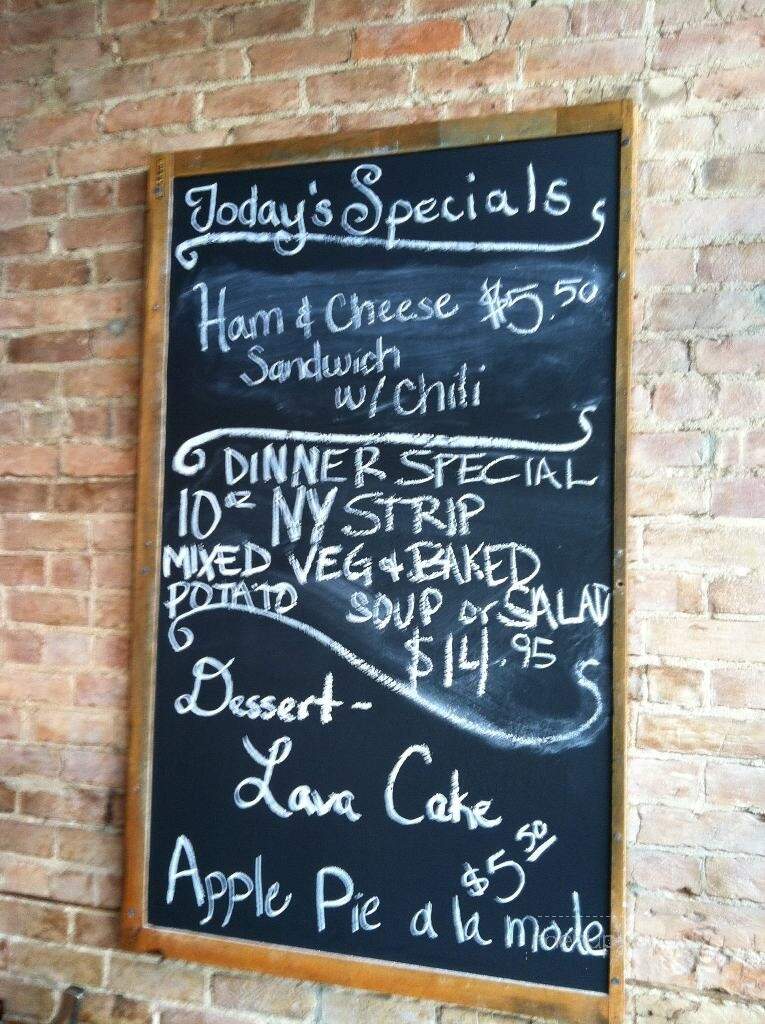 Today's Specials
Ham & Cheese $5.50
Sandwich
w/ Chili
DINNER SPECIAL
10oz NY STRIP
MIXED VEG & BAKED
POTATO SOUP or SALAD
$14.95
Dessert-
Lava Cake
$5 50/
Apple Pie a la mode